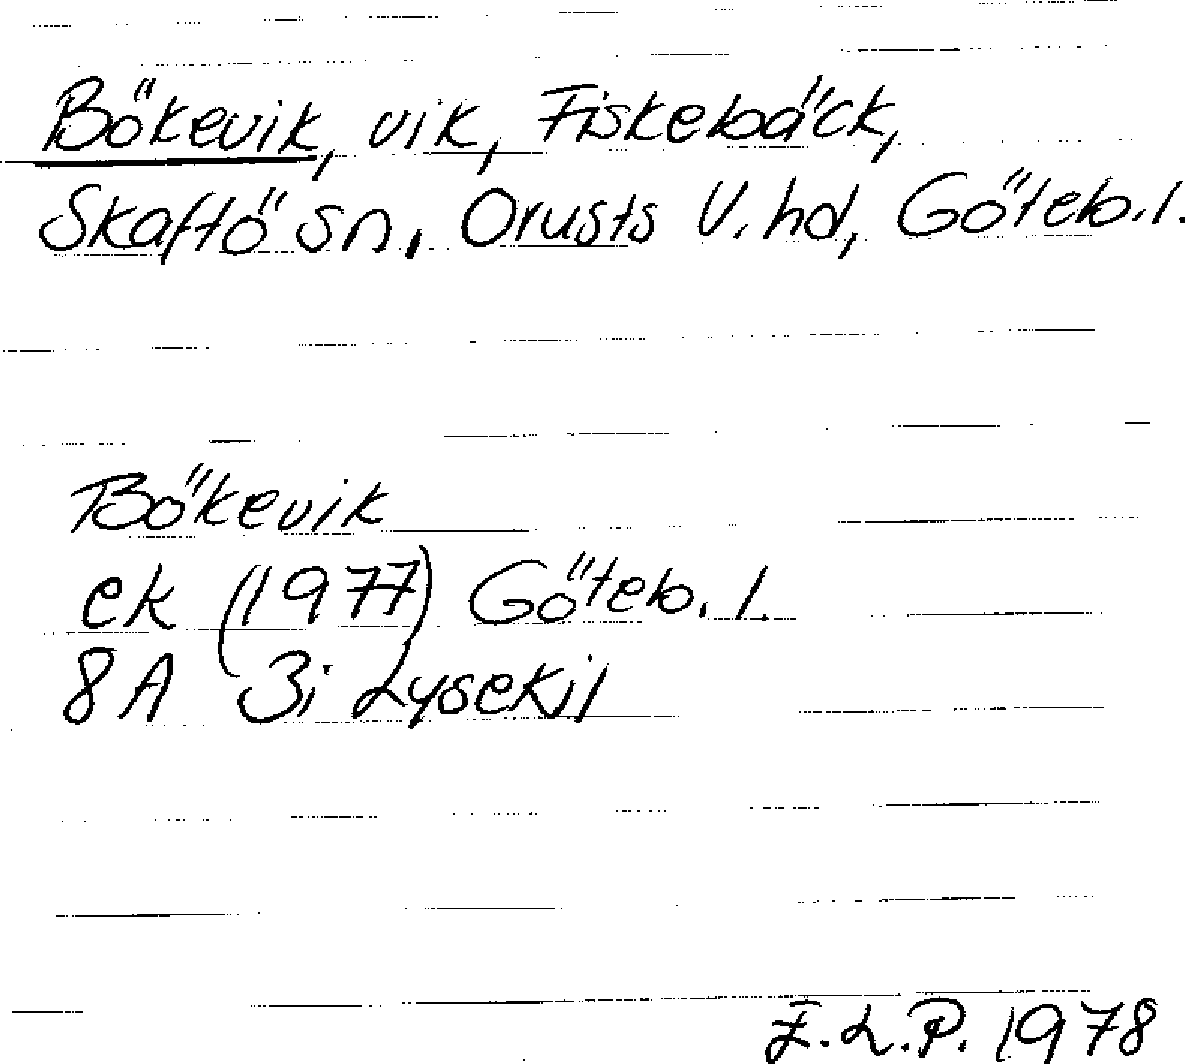 Bökevik, vik, Fiskebäck,
Skaftö sn, Orusts V. hd, Göteb. l.
Bökevik
ek (1977) Göteb. l.
8A 3i Lysekil
E.L.P. 1978